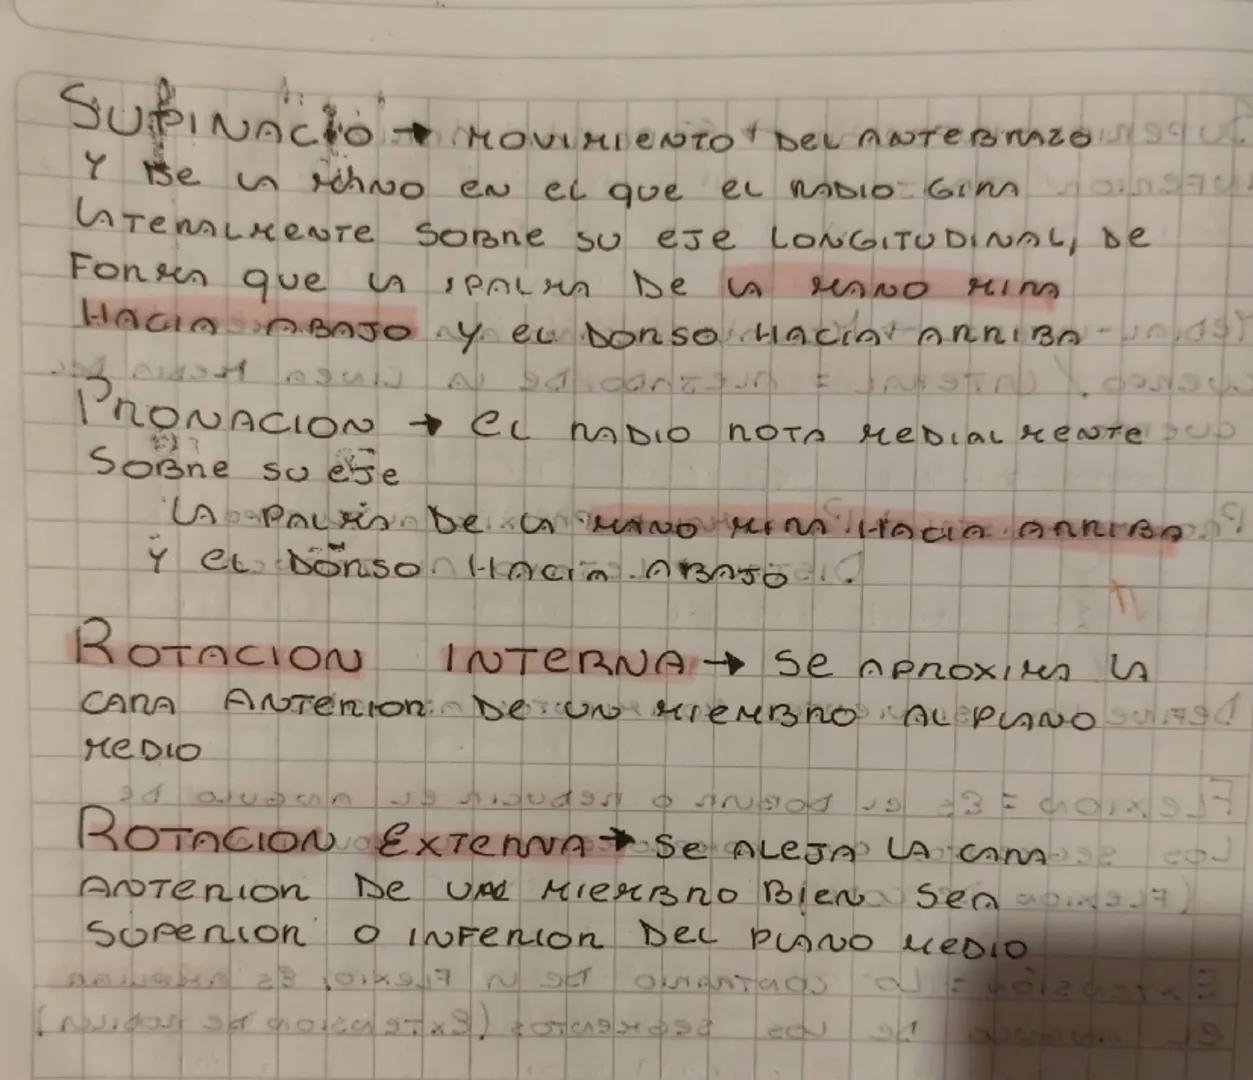 SUPINACIO → MOVIMIENTO DEL ANTEBRAZO
Y DE LA MANO EN EL QUE EL RADIO GIRA
LATERALMENTE SOBRE SU EJE LONGITUDINAL, DE
FORMA QUE LA PALMA DE LA MANO MIRA
HACIA ABAJO Y EL DORSO HACIA ARRIBA
PRONACION → EL RADIO ROTA MEDIALMENTE
SOBRE SU EJE
LA PALMA DE LA MANO MIRA HACIA ARRIBA
Y EL DORSO HACIA ABAJO.
ROTACION INTERNA → SE APROXIMA LA
CARA ANTERIOR DE UN MIEMBRO AL PLANO
MEDIO
ROTACION EXTERNA → SE ALEJA LA CARA
ANTERIOR DE MIEMBRO BIEN SEA
SUPERIOR O INFERIOR DEL PLANO MEDIO